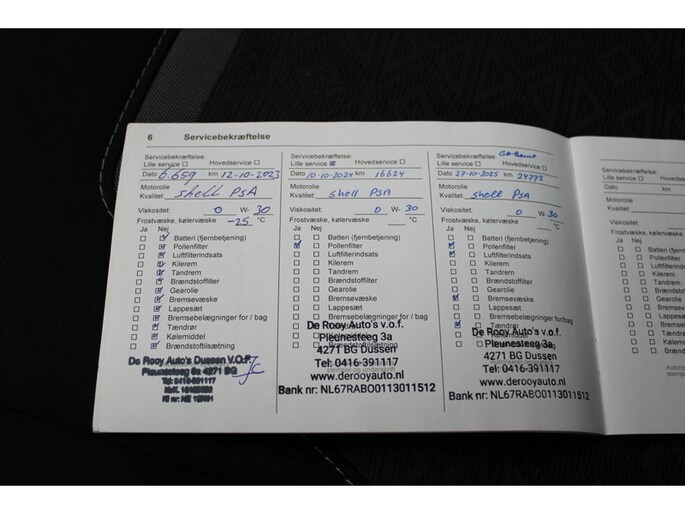 6 Servicebekræftelse
Servicebekræftelse
Lille service Hovedservice
Dato 6.659 km 12-10-2023
Motorolie
Kvalitet shell PSA
Viskositet: 0 W- 30
Frostvæske, kølervæske -25 °C
Ja Nej
Batteri (fjernbetjening)
Pollenfilter
Luftfilterindsats
Kilerem
Tandrem
Brændstoffilter
Gearolie
Bremsevæske
Lappesæt
Bremsebelægninger for / bag
Tændrør
Kølemiddel
Brændstofilsætning
De Rooy Auto's Dussen V.O.F.
Pleunesteeg 3a 4271 BG
Tel: 0416-391117
Servicebekræftelse
Lille service Hovedservice
Dato 10-10-2024 km 16624
Motorolie
Kvalitet shell PSA
Viskositet: 0 W- 30
Frostvæske, kølervæske °C
Ja Nej
Batteri (fjernbetjening)
Pollenfilter
Luftfilterindsats
Kilerem
Tandrem
Brændstoffilter
Gearolie
Bremsevæske
Lappesæt
Bremsebelægninger for / bag
De Rooy Auto's v.o.f.
Pleunesteeg 3a
4271 BG Dussen
Tel: 0416-391117
www.derooyauto.nl
Bank nr: NL67RABO0113011512
Servicebekræftelse
Lille service Hovedservice
Dato 27-10-2025 km 24772
Motorolie
Kvalitet shell PSA
Viskositet: 0 W- 30
Frostvæske, kølervæske °C
Ja Nej
Batteri (fjernbetjening)
Pollenfilter
Luftfilterindsats
Kilerem
Tandrem
Brændstoffilter
Gearolie
Bremsevæske
Lappesæt
Bremsebelægninger for/bag
Tændrør
De Rooy Auto's v.o.f.
Pleunesteeg 3a
4271 BG Dussen
Tel: 0416-391117
www.derooyauto.nl
Bank nr: NL67RABO0113011512
Servicebekræftelse
Lille service
Dato
Motorolie
Kvalitet
Viskositet:
Frostvæske, kølervæske
Ja Nej
Batteri
Pollenfilter
Luftfilterindsats
Kilerem
Tandrem
Brændstoffilter
Gearolie
Bremsevæske
Lappesæt
Tændrør
Kølemiddel